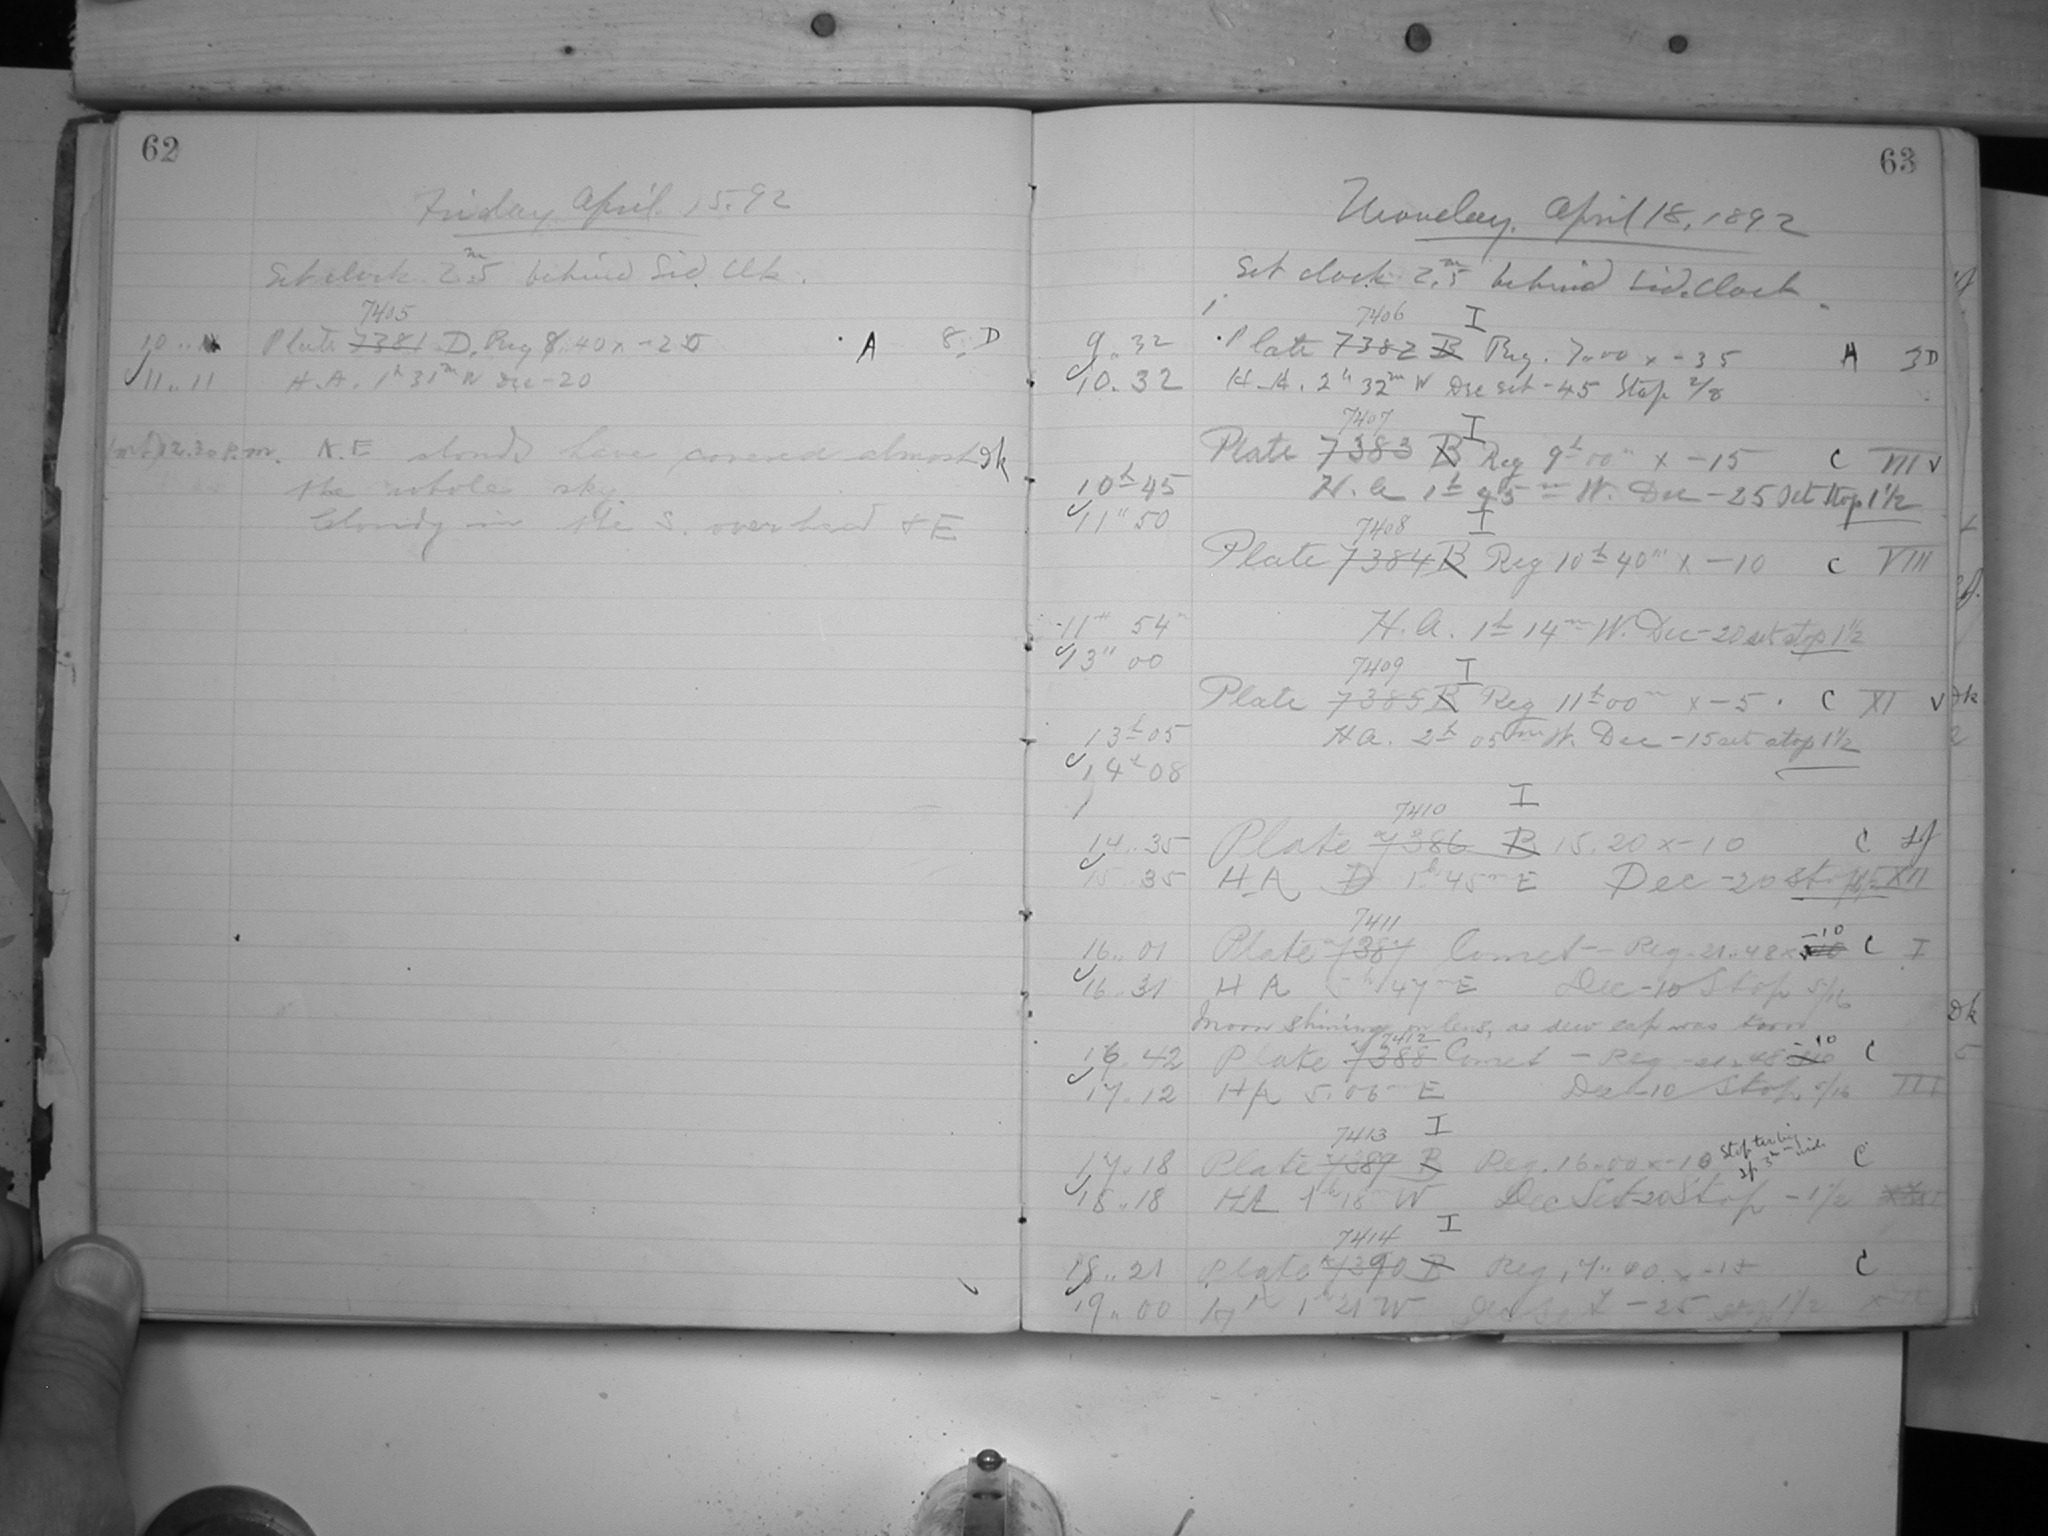 62
Friday April 15.92
Set clock 2.5m behind Sid. Clk.
7405
Plate 7381 D. Reg 8.40 x -20 A 8. D
11..11 H.A. 1h 31m W Dec -20
12.30 P.M. N.E clouds have covered almost Dk
the whole sky.
Cloudy in the S. overhead + E
63
Monday, April 18, 1892
Set clock 2.5m behind Sid. Clock.
7406 I
9..32 Plate 7382 B Reg. 7..00 x -35 A 3D
10..32 H.A. 2h 32m W Dec set -45 Stop 2/8
7407 I
Plate 7383 B Reg 9h 00m x -15 C VIII v
10h 45 H.A 1h 45m W. Dec -25 set stop 1 1/2
11" 50
7408 I
Plate 7384 B Reg 10h 40m x -10 C VIII
11h 54m H.A. 1h 14m W. Dec -20 set stop 1 1/2
13" 00
7409 I
Plate 7385 B Reg 11h 00m x -5. C XI v
13h 05 H.A. 2h 05m W. Dec -15 set stop 1 1/2
14h 08
7410 I
14..35 Plate 7386 B 15.20 x -10 C
15..35 H A D 1h 45m E Dec -20 Stop XII
7411
16..01 Plate 7387 Comet - Reg. 21..48 x -10 C I
16..31 H A 5h 47m E Dec -10 Stop 5/16
Moon shining on lens, as dew cap was torn
7412
16..42 Plate 7388 Comet - Reg - 21.48 -10 C
17..12 HA 5.06m E Dec -10 Stop 5/16 III
7413 I
17..18 Plate 7389 B Reg. 16..00 x -10 C
18..18 HA 1h 18 W Dec Set -20 Stop - 1 1/2
7414 I
18..21 Plate 7390 B Reg. 17..40 x -15 C
19..00 1 21 W Dec Set -25 stop 1 1/2